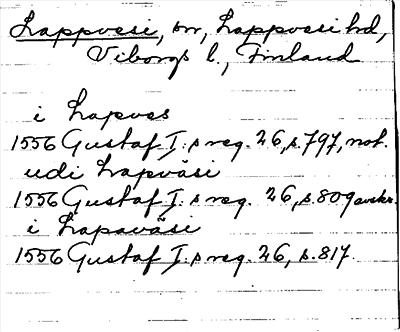 Lappvesi, sn, Lappvesi hd,
Viborgs l., Finland
i Lapves
1556 Gustaf I:s reg. 26, s. 797, not.
udi Lapväsi
1556 Gustaf I:s reg. 26, s. 809 avskr.
i Lapaväsi
1556 Gustaf I:s reg. 26, s. 817.